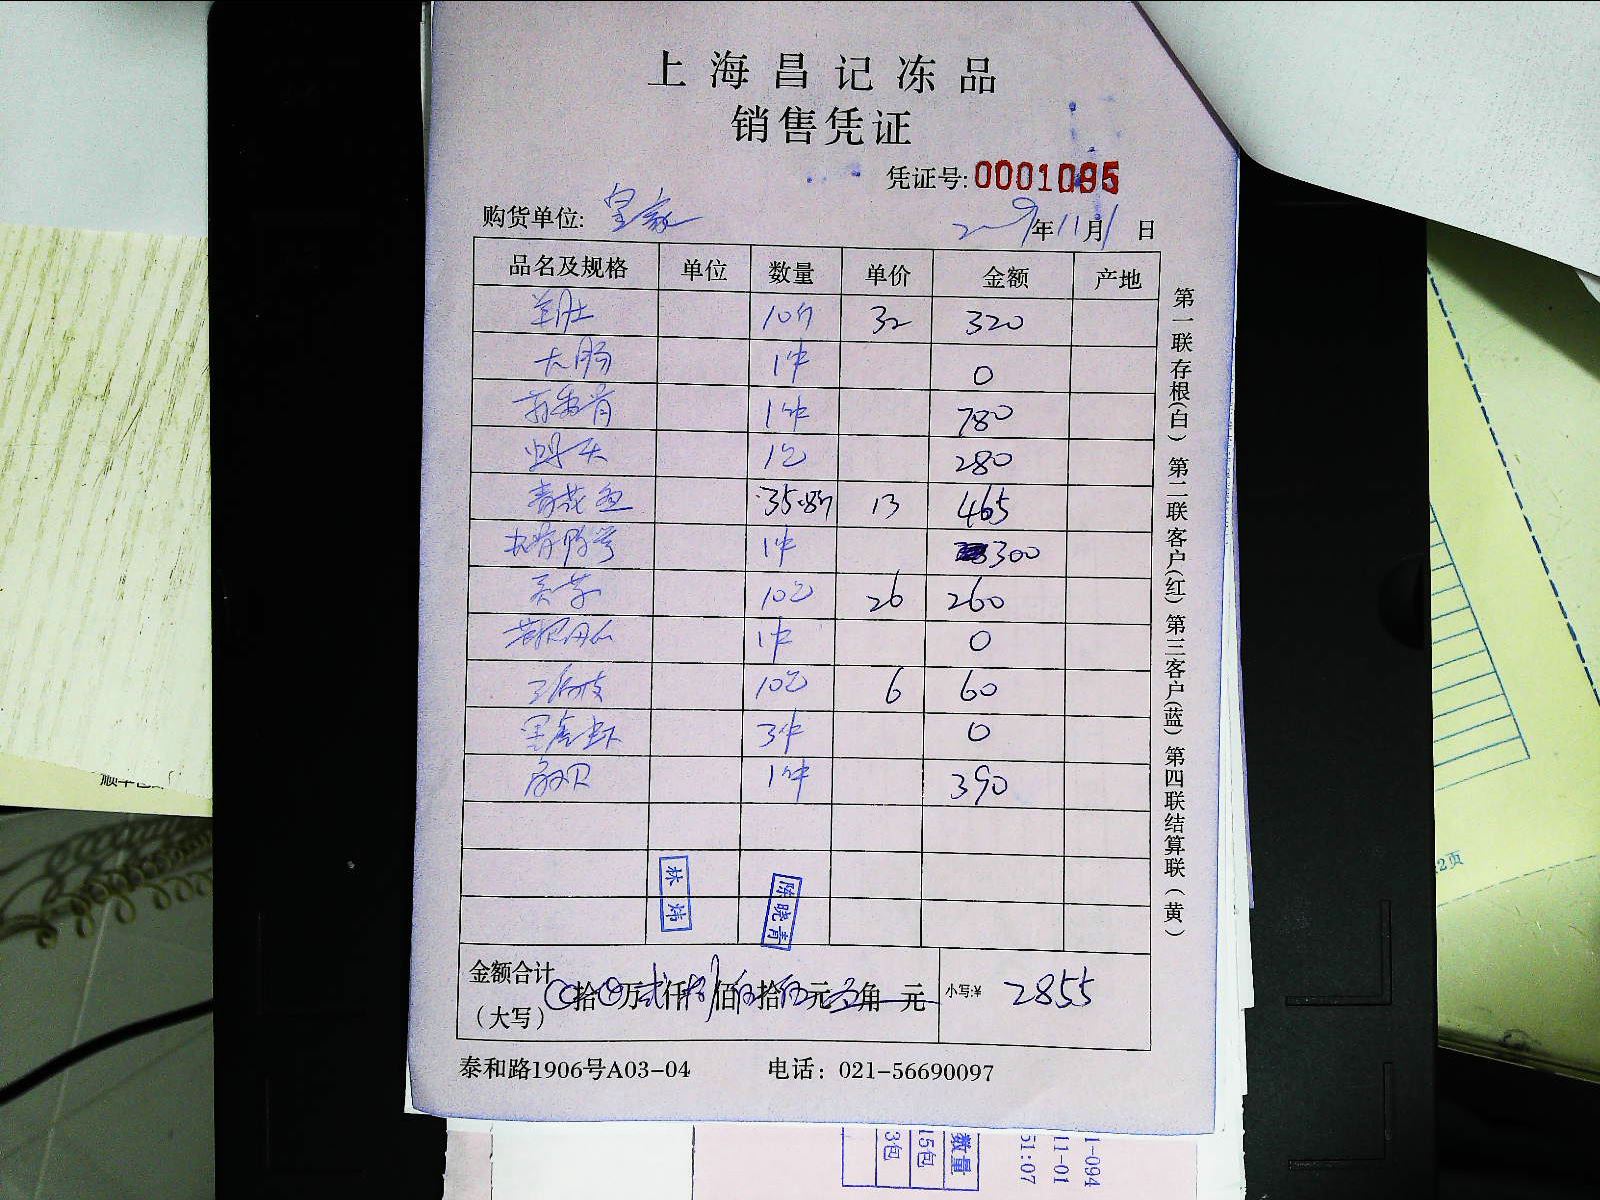 上海昌记冻品
销售凭证
凭证号: 0001095
购货单位: 皇家 2009年11月1日
品名及规格 单位 数量 单价 金额 产地
羊肚 10斤 32 320
大肠 1件 0
1件 780
1包 280
青花鱼 35.8斤 13 465
1件 300
10包 26 260
1件 0
10包 6 60
黑虎虾 3件 0
扇贝 1件 390
林炜
陈晓青
金额合计
(大写) 拾 万 贰仟捌佰伍拾伍元 角 元 小写:¥ 2855
泰和路1906号A03-04 电话: 021-56690097
第一联存根(白) 第二联客户(红) 第三客户(蓝) 第四联结算联(黄)
数量
15包
3包
1-094
11-01
51:07
2页